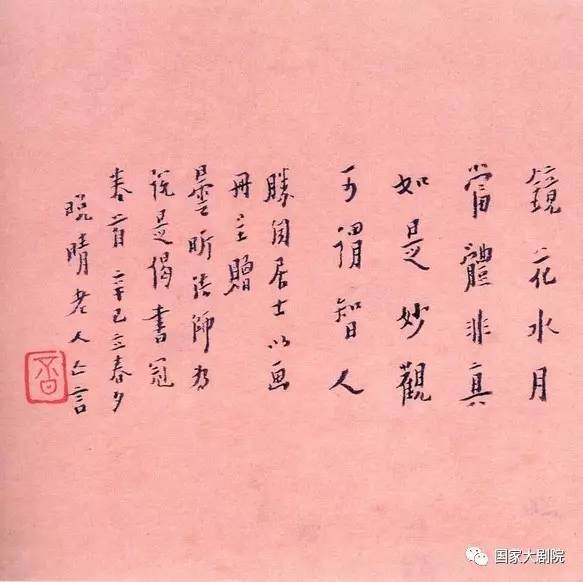 鏡花水月
當體非真
如是妙觀
可謂智人
勝居士以画
冊贈
曇昕法師為
說是偈書冠
卷首辛巳立春夕
晚晴老人亡言
国家大剧院